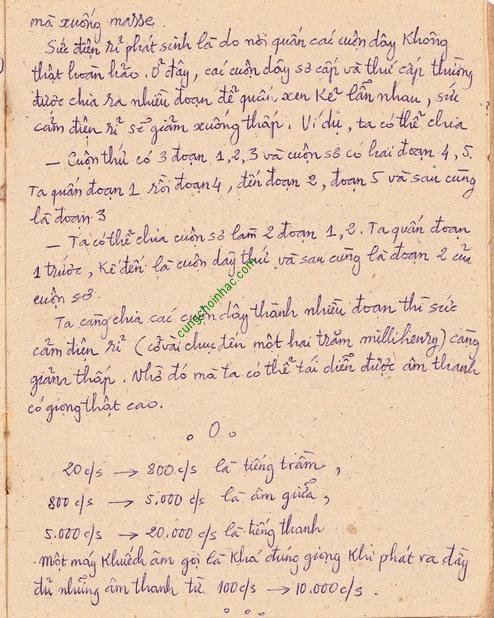 mà xuống masse.
Sức điện rỉ phát sinh là do nơi quấn các cuộn dây không
thật hoàn hảo. Ở đây, các cuộn dây sơ cấp và thứ cấp thường
được chia ra nhiều đoạn để quấn, xen kẽ lẫn nhau, sức
cảm điện rỉ sẽ giảm xuống thấp. Ví dụ, ta có thể chia
– Cuộn thứ có 3 đoạn 1, 2, 3 và cuộn sơ có hai đoạn 4, 5.
Ta quấn đoạn 1 rồi đoạn 4, đến đoạn 2, đoạn 5 và sau cùng
là đoạn 3
– Ta có thể chia cuộn sơ làm 2 đoạn 1, 2. Ta quấn đoạn
1 trước, kế đến là cuộn dây thứ và sau cùng là đoạn 2 của
cuộn sơ.
Ta càng chia các cuộn dây thành nhiều đoạn thì sức
cảm điện rỉ (cỡ vài chục đến một hai trăm millihenry) càng
giảm thấp. Nhờ đó mà ta có thể tái diễn được âm thanh
có giọng thật cao.
o O o
20 c/s → 800 c/s là tiếng trầm,
800 c/s → 5.000 c/s là âm giữa,
5.000 c/s → 20.000 c/s là tiếng thanh
Một máy khuếch âm gọi là khá đúng giọng khi phát ra đầy
đủ những âm thanh từ 100 c/s → 10.000 c/s.
o o o
cungchoinhac.com